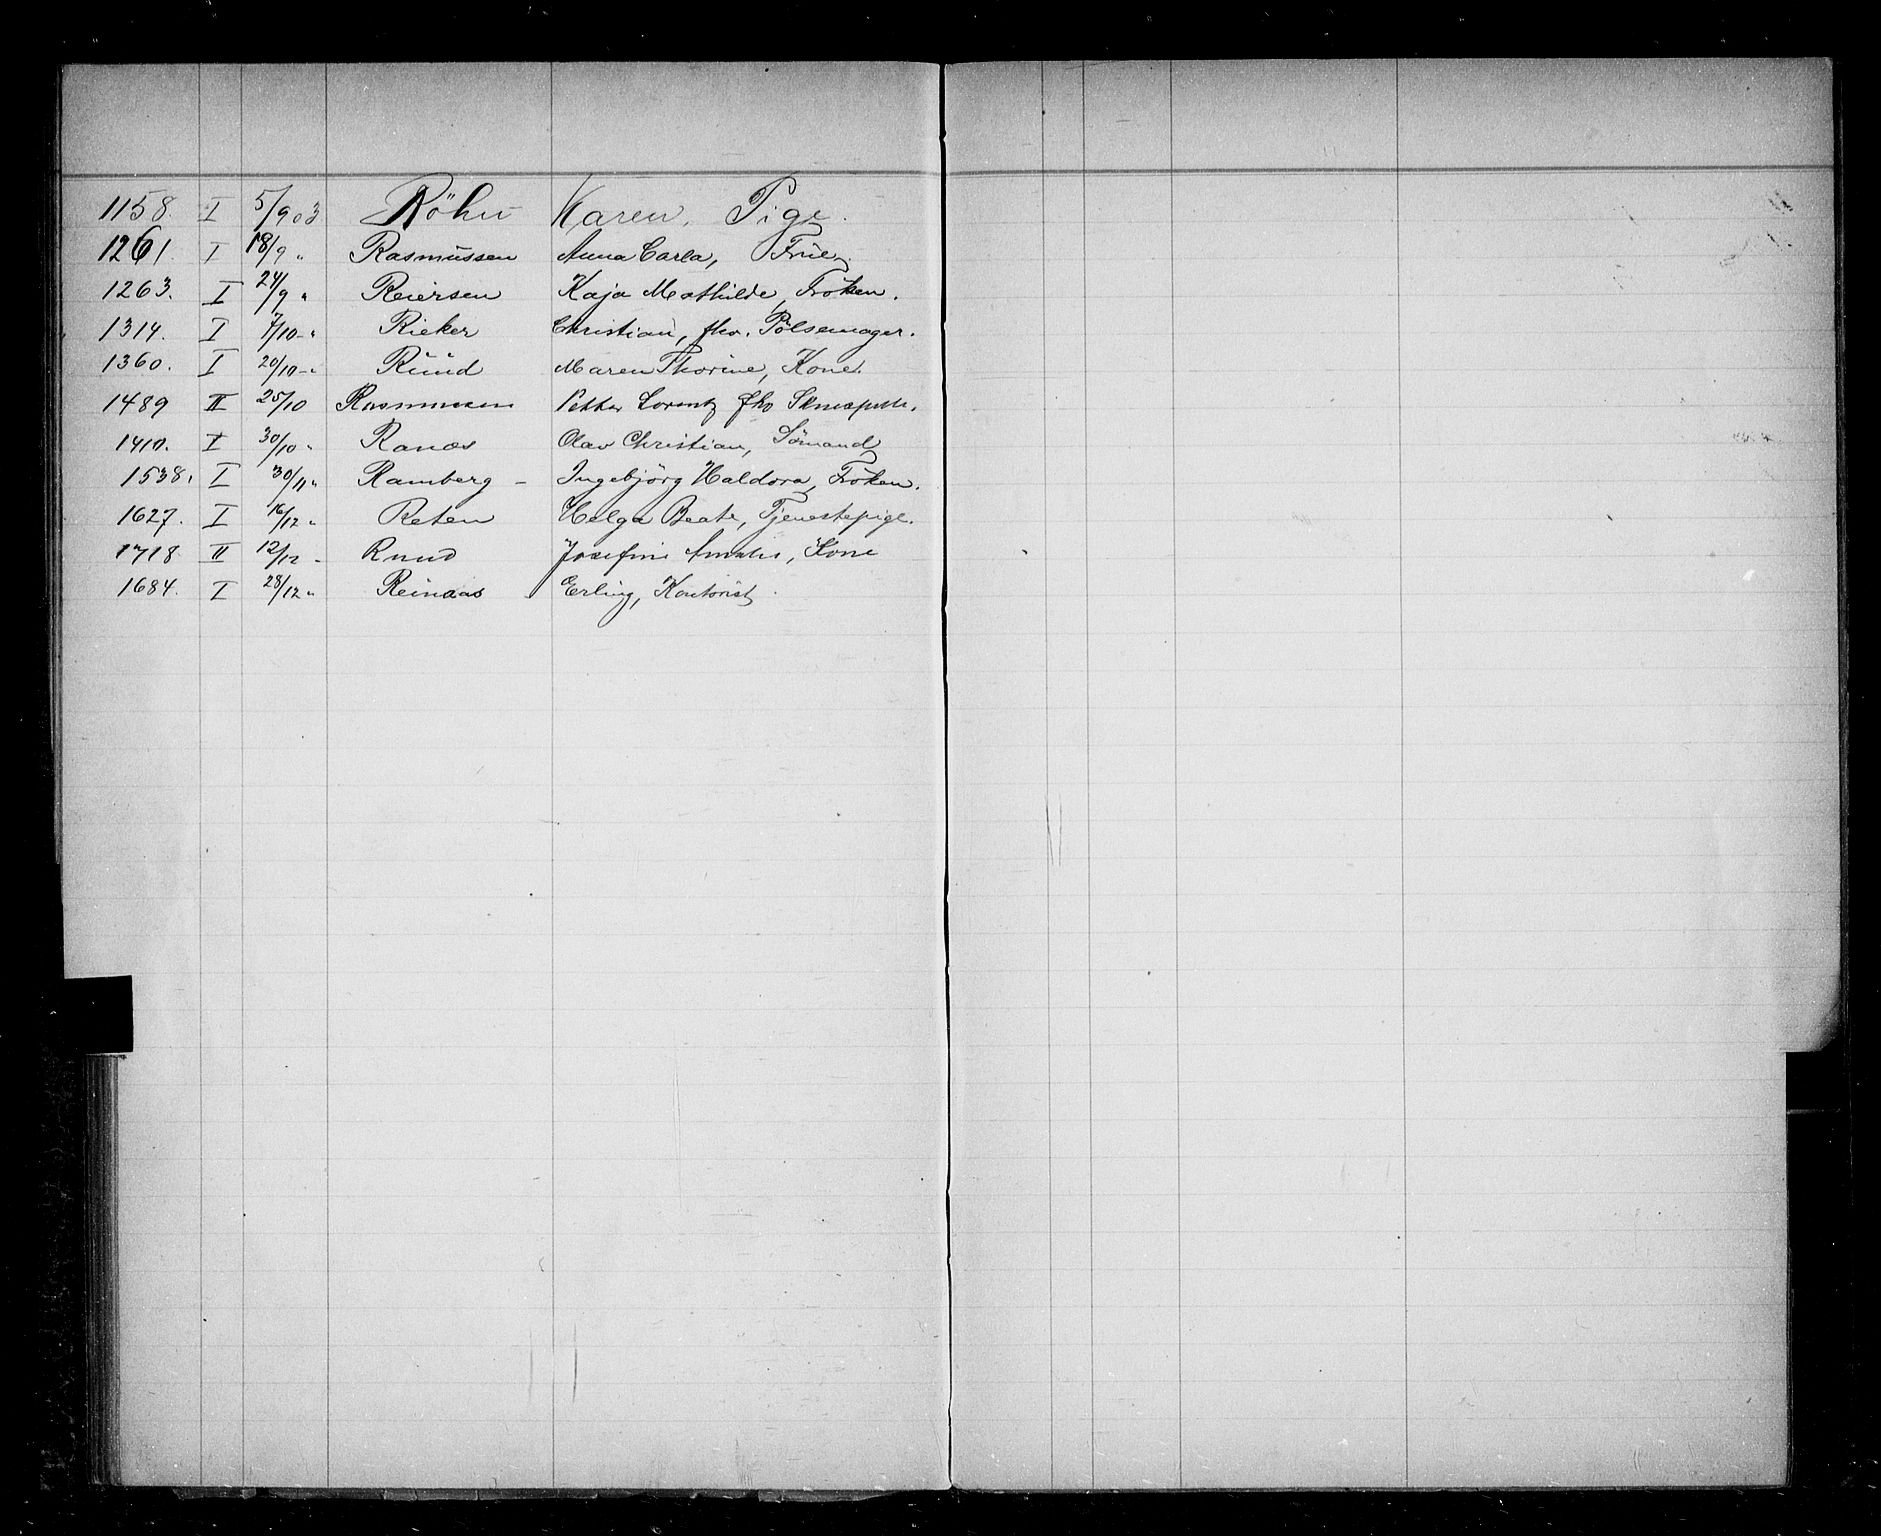 1158. I 5/9 03 Röhr Karen, Pige.
1261. I 18/9 " Rasmussen Anna Carla, Frue.
1263. I 24/9 " Reiersen Kaja Mathilde, Fröken.
1314. I 7/10 - " Rieker Christian, fhv. Pölsemager.
1360. I 20/10 - " Ruud Maren Thorine, Kone.
1489 II 25/10 Rasmussen Petter Lorentz fhv
1410. I 30/10 " Ranæs Olav Christian, Sömand
1538. I 30/11 " Ramberg - Ingebjörg Haldora, Fröken.
1627. I 16/12 " Reten Helga Beate, Tjenestepige.
1718. II 12/12 - Ruud Josefine Amalie, Kone
1684. I 28/12 " Reinaas Erling, Kontorist.